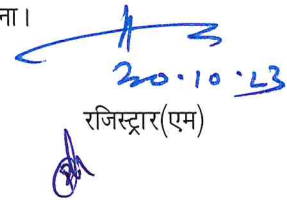 ना।
20.10.23
रजिस्ट्रार(एम)